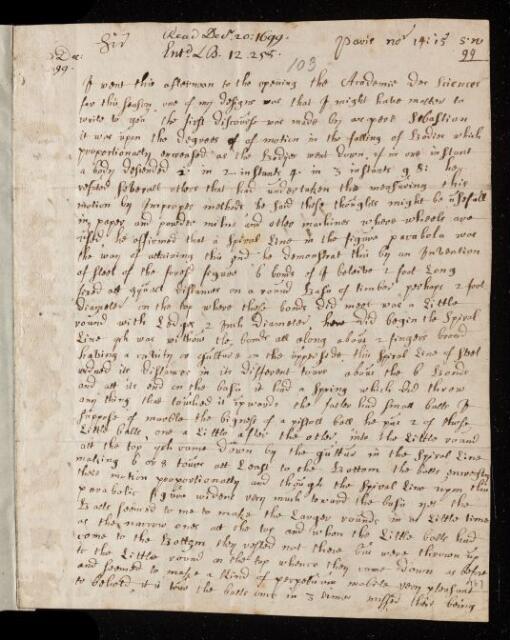 Sir Read Dec. 20: 1699. Paris nov 14: 15 S: N
99. Entd LB. 12. 255. 99
103
I went this afternoon to the opening the Academie Des Sciences
for this season, one of my designs was that I might have matter to
write to you the first discourse was made by as pere Sebastian
it was upon the degrees of of motion in the falling of Bodies which
proportionally encreased as the Bodies went down, if in one instant
a body descended in 2 instants 4. in 3 instants 9 &: he
refuted severall others that had undertaken the measuring this
motion by Improper methods he said these thoughts might be usefull
in paper and powder milns and other machines where wheels are
used he affirmed that a Spiral Line in the figure parabola was
the way of attaining this end he demonstrat this by an Invention
of steel of the forsd figure 6 bonds of I beleive 2 foot Long
fixed att equall distances on a round Basis of timber perhaps 2 foot
diameter on the top where these bonds did meet was a Little
round with Ledges 2 Inch Diameter here Did begin the Spiral
Line qch was within the bonds all along about 2 fingers broad
having a cavity or gutture on the upperside this Spiral Line of steel
its distance in its different tours about the 6 Bonds
and att its end on the basis it had a Spring which did throw
any thing that touched it upwards. the father had small balls I
suppose of marble the bigness of a pistoll ball he put 2 of those
Little balls, one a Little after the other, into the Little round
att the top qch came down by the guttur in the Spiral Line
making 6 or 8 tours att Least to the Bottom the balls encreasing
their motion proportionally and though the Spiral Line upon this
parabolic figure widens very much toward the basis yet the
Balls seemed to me to make the Larger rounds in as Little time
as the narrow ones att the top and when the Little balls had
come to the Bottom they rested not there but were thrown up
to the Little round on the top whence they came down as before
and seemed to make a kind of perpetuum mobile very pleasant
to behold, it is true the balls once in 3 times missed their being